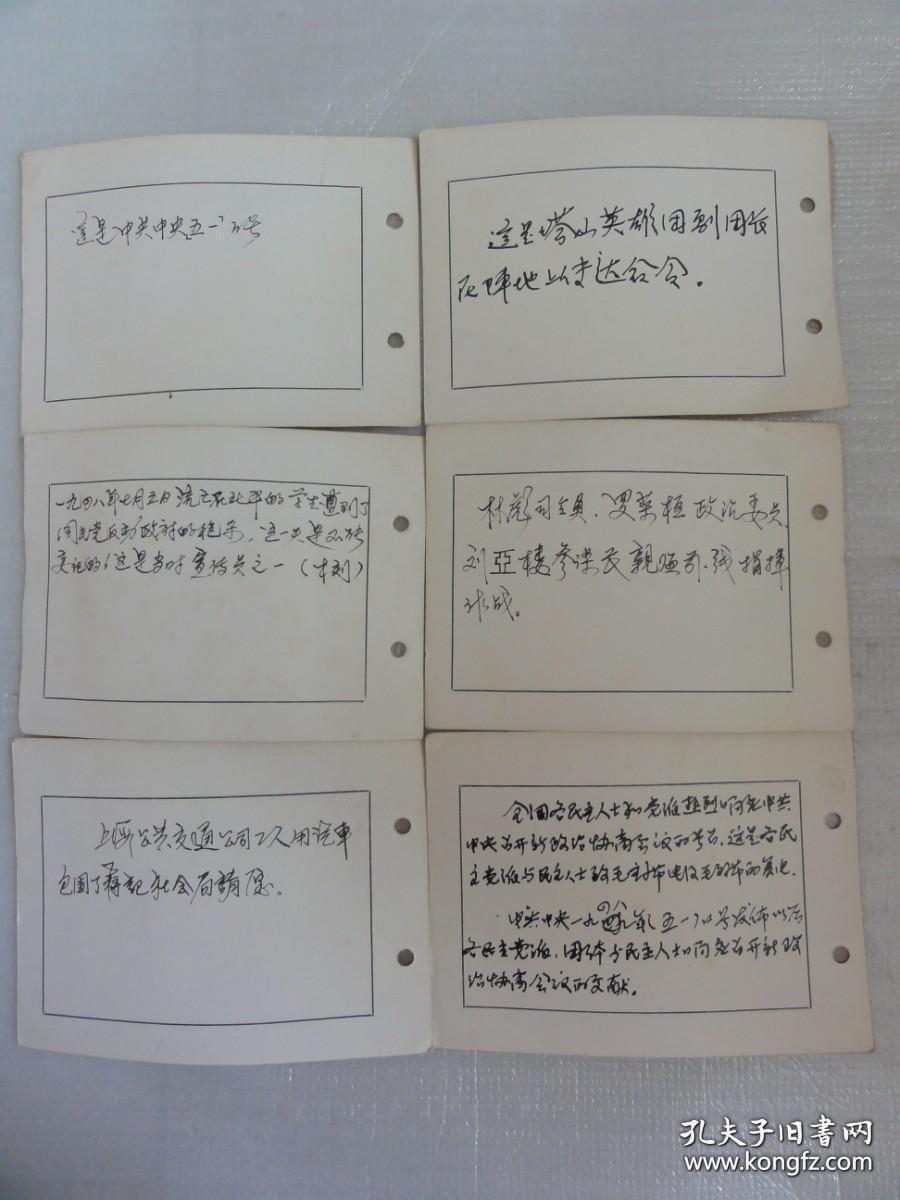 这是中共中央五一口号
这是塔山英雄团副团长
在阵地上传达命令。
一九四八年七月五日流亡在北平的学生遭到了
国民党反动政府的枪杀，这一天是不能
忘记的，这是当时宣传员之一（木刻）
林彪司令员、罗荣桓政治委员、
刘亞楼参谋长親临前线指揮
作战。
上海公共交通公司工人用汽車
包围了蒋記社会局請愿。
全国各民主人士和党派热烈响应中共
中央召开新政治协商会议的号召，这是各民
主党派与民主人士致毛主席电及毛主席的复电。
中共中央一九四八年五一口号发佈以后
各民主党派、团体与民主人士响应召开新政
治协商会议的文献。
孔夫子旧書网
www.kongfz.com